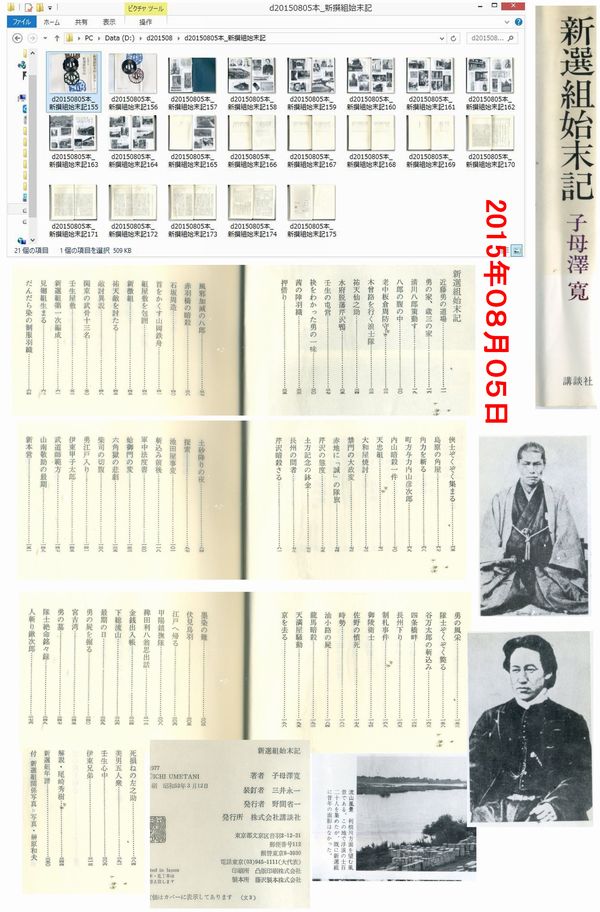 ピクチャ ツール
d20150805本_新撰組始末記
ファイル
ホーム
共有
表示
操作
PC
Data (D:)
d201508
d20150805本_新撰組始末記
d20150805本_
新撰組始末記155
d20150805本_
新撰組始末記156
d20150805本_
新撰組始末記157
d20150805本_
新撰組始末記158
d20150805本_
新撰組始末記159
d20150805本_
新撰組始末記160
d20150805本_
新撰組始末記161
d20150805本_
新撰組始末記162
d20150805本_
新撰組始末記163
d20150805本_
新撰組始末記164
d20150805本_
新撰組始末記165
d20150805本_
新撰組始末記166
d20150805本_
新撰組始末記167
d20150805本_
新撰組始末記168
d20150805本_
新撰組始末記169
d20150805本_
新撰組始末記170
d20150805本_
新撰組始末記171
d20150805本_
新撰組始末記172
d20150805本_
新撰組始末記173
d20150805本_
新撰組始末記174
d20150805本_
新撰組始末記175
21 個の項目
1 個の項目を選択 509 KB
新選組始末記
子母澤 寛
講談社
2015年08月05日
新選組始末記
近藤勇の道場
勇の家、歳三の家
清川八郎策動す
八郎の腹の中
老中板倉周防守
木曾路を行く浪士隊
祐天仙之助
水府脱藩芹沢鴨
壬生の屯営
袂をわかった勇の一味
茜の陣羽織
押借り
風邪加減の八郎
赤羽橋の暗殺
石坂周造
首をかくす山岡鉄舟
組屋敷を包囲
新徴組
祐天敵を討たる
敵討異説
関東の武骨十三名
壬生屋敷
新選組第一次編成
見廻組生まる
だんだら染の制服羽織
侠士ぞくぞく集まる
島原の角屋
角力を斬る
町方与力内山彦次郎
内山暗殺一件
天忠組
大和屋焼討
禁門の大政変
赤地に「誠」の隊旗
芹沢の態度
土方記念の鉢金
長州の間者
芹沢暗殺さる
土砂降りの夜
探索
池田屋事変
斬込み前後
軍中法度書
蛤御門の変
六角獄の悲劇
柴司の切腹
勇江戸入り
伊東甲子太郎
武道師範方
山南敬助の最期
新本営
勇の風栄
隊士ぞくぞく斃る
谷万太郎の斬込み
四条橋畔
長州下り
制札事件
御陵衛士
佐野の憤死
時勢
油小路の屍
龍馬暗殺
天満屋騒動
京を去る
墨染の難
伏見鳥羽
江戸へ帰る
甲陽鎮撫隊
稗田利八翁思出話
金銭出入帳
下総流山
最期の日
勇の屍を掘る
宮古湾
勇の墓
隊士絶命銘々録
人斬り鍬次郎
死損ねの左之助
美男五人衆
壬生心中
伊東兄弟
解説・尾崎秀樹
新選組年譜
付 新選組関係写真=写真・榊原和夫
新選組始末記
1977
ICHI UMETANI
刷 昭和53年3月12日
著者 子母澤寛
装釘者 三井永一
発行者 野間省一
発行所 株式会社講談社
東京都文京区音羽2-12-21
郵便番号112
振替東京8-3930
電話東京(03)945-1111(大代表)
印刷所 凸版印刷株式会社
製本所 藤沢製本株式会社
Printed in Japan
はカバーに表示してあります
(文3)
流山風景